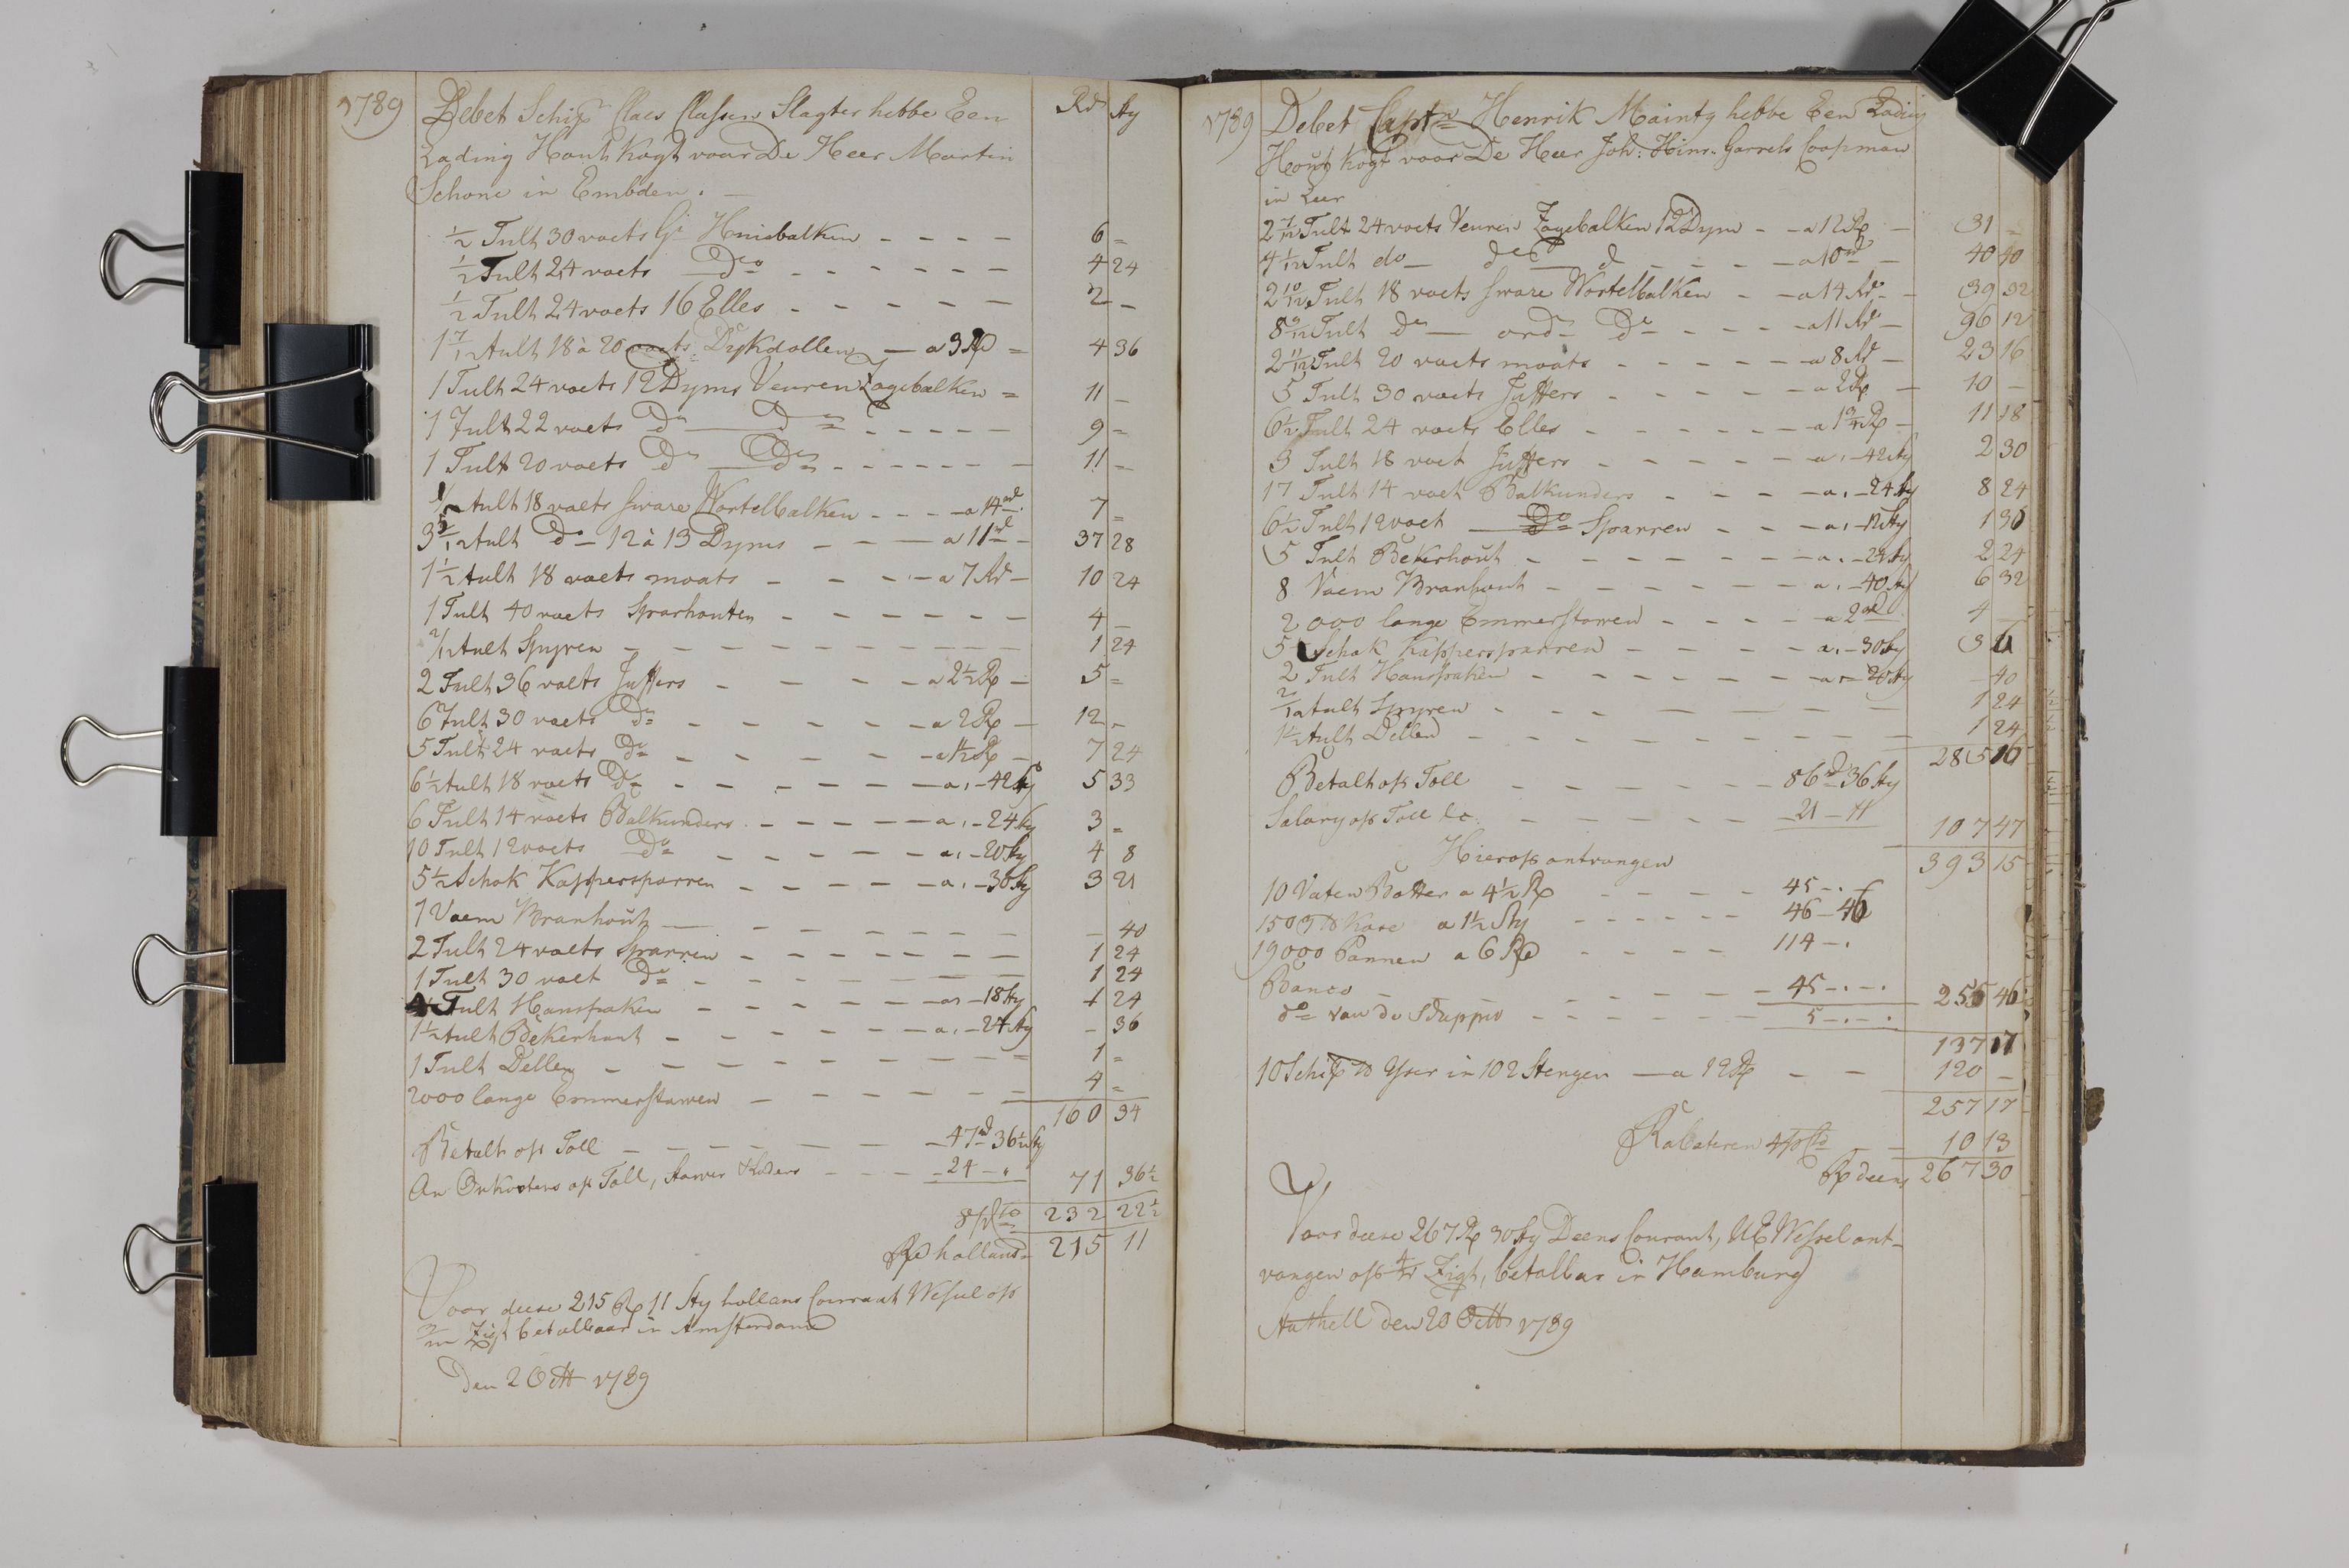 1789 Debet Schip Claes Classen Slagter hebbe Een Rd Sty
Lading Hout kogt voor De Heer Martin
Schone in Embden. —
1/2 Tult 30 voets Gr Huisbalken - - - - 6 =
1/2 Tult 24 voets Do - - - - - - 4 24
1/2 Tult 24 voets 16 Elles - - - - - 2 -
1 7/12 Tult 18 à 20 voets Dykdollen — a 3 Rd = 4 36
1 Tult 24 voets 12 Dyms Veuren Zagebalken = 11 -
1 Tult 22 voets Do — Do - - - - - 9 =
1 Tult 20 voets Do — Do - - - - - - 11 =
1/2 Tult 18 voets sware Wortelbalken - - - a 14 rd 7 =
3 5/12 Tult Do 12 à 13 Dyms - - — a 11 rd - 37 28
1 1/2 Tult 18 voets moats - - - - a 7 Rd - 10 24
1 Tult 40 voets Sparhouten - - - - - - 4 -
2/12 Tult Spyren - - - - - - - - 1 24
2 Tult 36 voets Juffers - - - - a 2 1/2 R - 5 =
6 Tult 30 voets Do - - - - - a 2 R - 12 -
5 Tult 24 voets Do - - - - - a 1 1/2 R - 7 24
6 1/2 Tult 18 voets Do - - - - - - a . - 42 Sty 5 33
6 Tult 14 voets Balkunders - - - - - a . - 24 Sty 3 =
10 Tult 12 voets Do - - - - - a . - 20 Sty 4 8
5 1/2 Schok Kappersparren - - - - a . - 30 Sty 3 21
1 Vaem Branhout - - - - - - - - 40
2 Tult 24 voets Sparren - - - - - - - 1 24
1 Tult 30 voet Do - - - - - - - 1 24
4 Tult Hanspaken - - - - - - a - 18 Sty 1 24
1 1/2 Tult Bekerhout - - - - - a . - 24 Sty - 36
1 Tult Dellen - - - - - - - - 1 =
2000 lange Emmerstawen - - - - - - 4 =
160 34
Betalt op Toll - - - - - - 47 rd 36 1/2 Sty
An Onkosten op Toll, - - - 24 - . 71 36 1/2
8 p Cto 232 22 1/2
Rd hollans 215 11
Voor deese 215 R 11 Sty hollans Courant Wessel op
Zigt betalbaar in Amsterdam
Den 2 Octt 1789
1789 Debet Captn Henrik Mainty hebbe Een Lading
Hout kogt voor De Heer Joh: Hinr. Garrels Coopman
in Leer
2 7/12 Tult 24 voets Veuren Zagebalken 12 Dym - - a 12 R - 31 =
4 1/12 Tult do — do d - - - - a 10 rd - 40 40
2 10/12 Tult 18 voets sware Wortelbalken - - a 14 Rd - 39 32
8 9/12 Tult do — ordn Do - - - - a 11 Rd - 96 12
2 11/12 Tult 20 voets moats - - - - - a 8 Rd - 23 16
5 Tult 30 voets Juffers - - - - - a 2 R - 10 -
6 1/2 Tult 24 voets Elles - - - - - a 1 3/4 R - 11 18
3 Tult 18 voet Juffers - - - - - a . - 42 Sty 2 30
17 Tult 14 voet Balkunders - - - - a . - 24 Sty 8 24
6 1/2 Tult 12 voet — Do Sparren - - - a . - 12 Sty 1 30
5 Tult Bekerhout - - - - - - - a . - 24 Sty 2 24
8 Vaem Branhout - - - - - - a . - 40 Sty 6 32
2000 lange Emmerstawen - - - - a 2 rd 4 -
5 Schok Kappersparren - - - - a . - 30 Sty 3 6
2 Tult Hanspaken - - - - - - a - 20 Sty - 40
2/12 Tult Spyren - - - - - - - 1 24
1 1/2 Tult Dellen - - - - - - - - 1 24
285 16
Betalt op Toll - - - - - 86 rd 36 Sty
Salary op Toll &c. - - - - - 21 - 11 107 47
Hierop ontvangen 393 15
10 Vaten Botter a 4 1/2 R - - - - 45 - . -
1503 lb Kase a 1 1/2 Sty - - - - - - 46 - 46
19000 Pannen a 6 Rd - - - - 114 - .
Banco - - - - - - 45 - . - .
do van de - - - - - - 5 - . - . 255 46
137 17
10 Schip lb Yser in 102 Stengen — a 12 R - - 120 -
257 17
Rabateren 4 p Cto - 10 13
R deens 267 30
Voor deese 267 R 30 Sty Deens Courant, UE Wessel ont-
vangen op Zigt, betalbar in Hamburg
den 20 Octt 1789